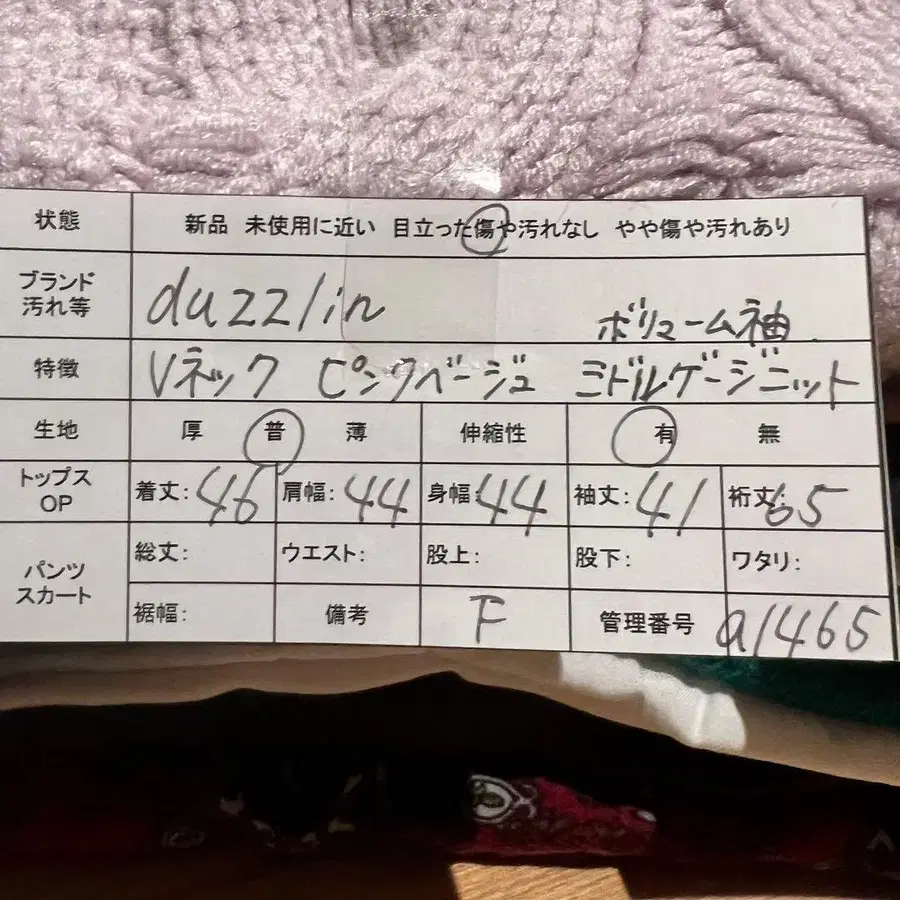 状態 新品 未使用に近い 目立った傷や汚れなし やや傷や汚れあり
ブランド 汚れ等 duzzlin ボリューム袖
特徴 Vネック ピンクベージュ ミドルゲージニット
生地 厚 普 薄 伸縮性 有 無
トップス OP 着丈:46 肩幅:44 身幅:44 袖丈:41 裄丈:65
パンツ スカート 総丈: ウエスト: 股上: 股下: ワタリ:
裾幅: 備考 F 管理番号 a1465